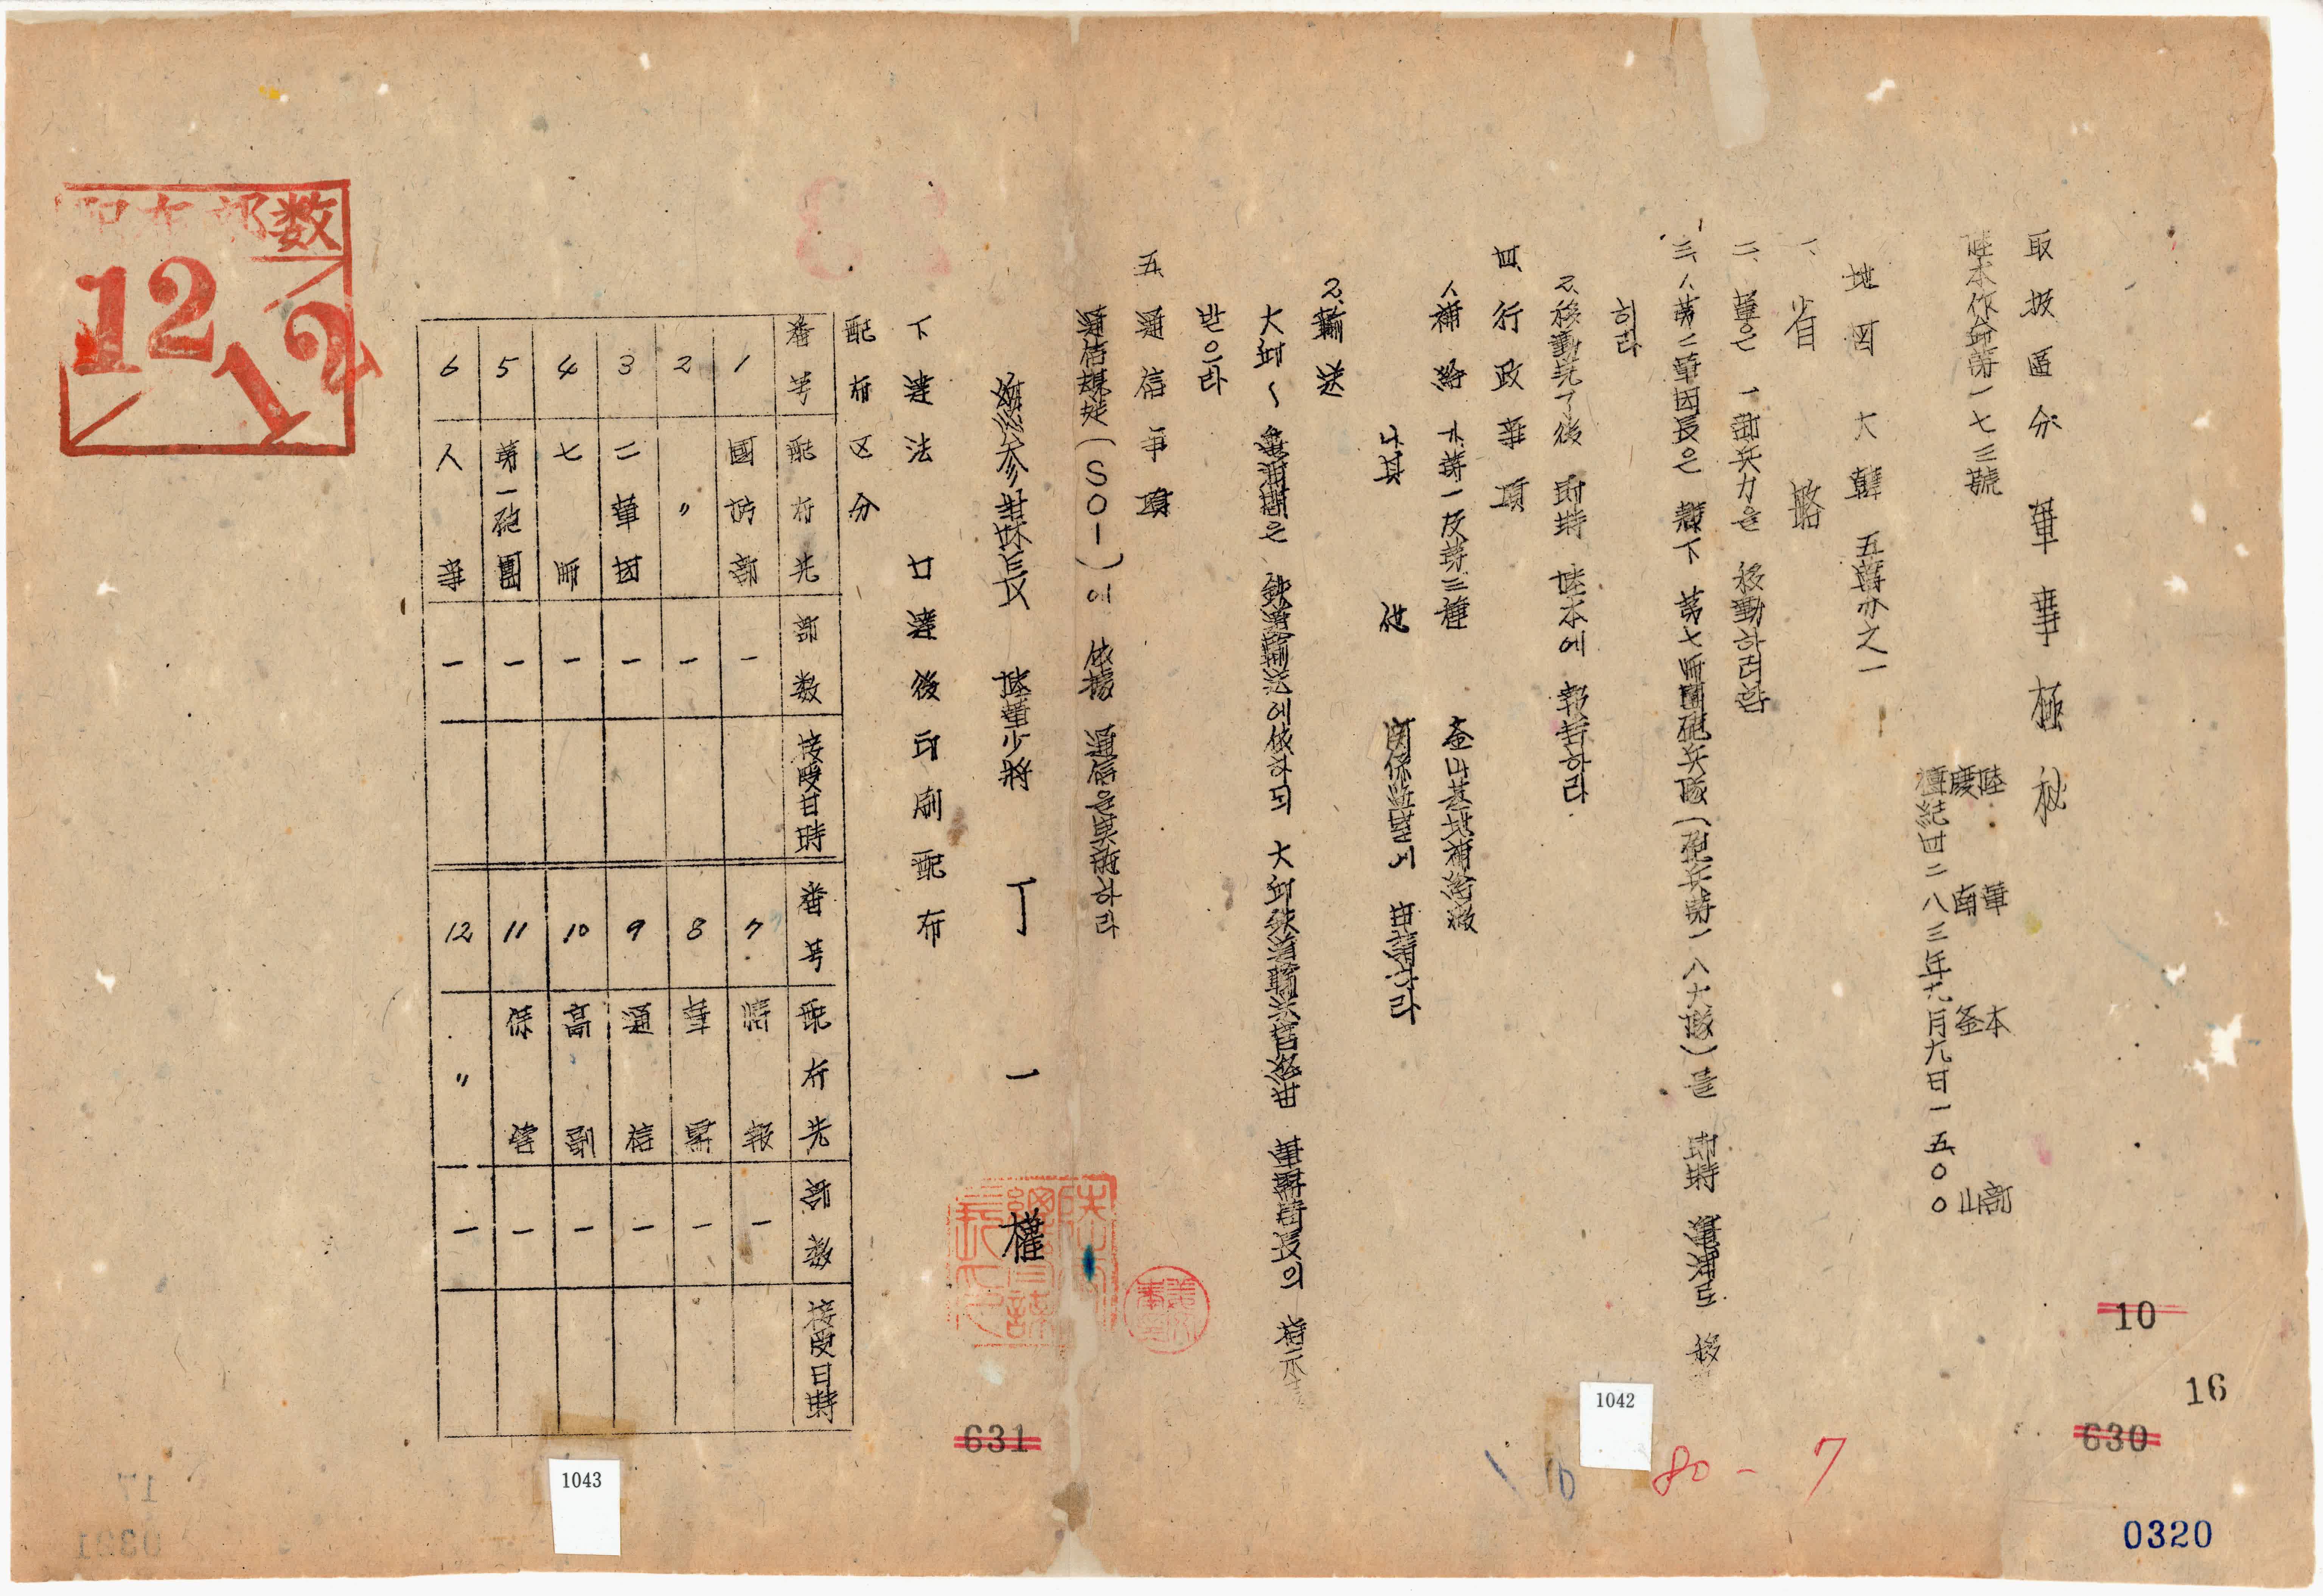 取扱區分 軍事極秘
陸本作命第一七三號
陸軍本部
慶南釜山
檀紀四二八三年九月九日一五〇〇
地図 大韓 五萬分之一
一、省略
二、軍은 一部兵力을 移動하려함
三、1、第二軍団長은 麾下 第七師團砲兵隊(砲兵第一八大隊)을 即時 龜浦로 移
하라
2、移動完了後 即時 陸本에 報告하라
四、行政事項
1、補給 가、第一及第三種 釜山基地補給廠
나、其他 関係監室에 申請하라
2、輸送
大邱~龜浦間은 鉄道輸送에依하되 大邱鉄道輸送 軍需局長의 指示
받으라
五、通信事項
通信規定(SOI)에 依據 通信을実施하라
總参謀長 陸軍少將 丁一權
下達法 口達後印刷配布
配布区分
番号 配布先 部数 接受日時 番号 配布先 部数 接受日時
1 國防部 一 7 情報 一
2 〃 一 8 軍需 一
3 二軍団 一 9 通信 一
4 七師 一 10 高副 一
5 第一砲團 一 11 保管 一
6 人事 一 12 〃 一
配布部数
12
12
10
16
630
631
1042
1043
80-7
10
0320